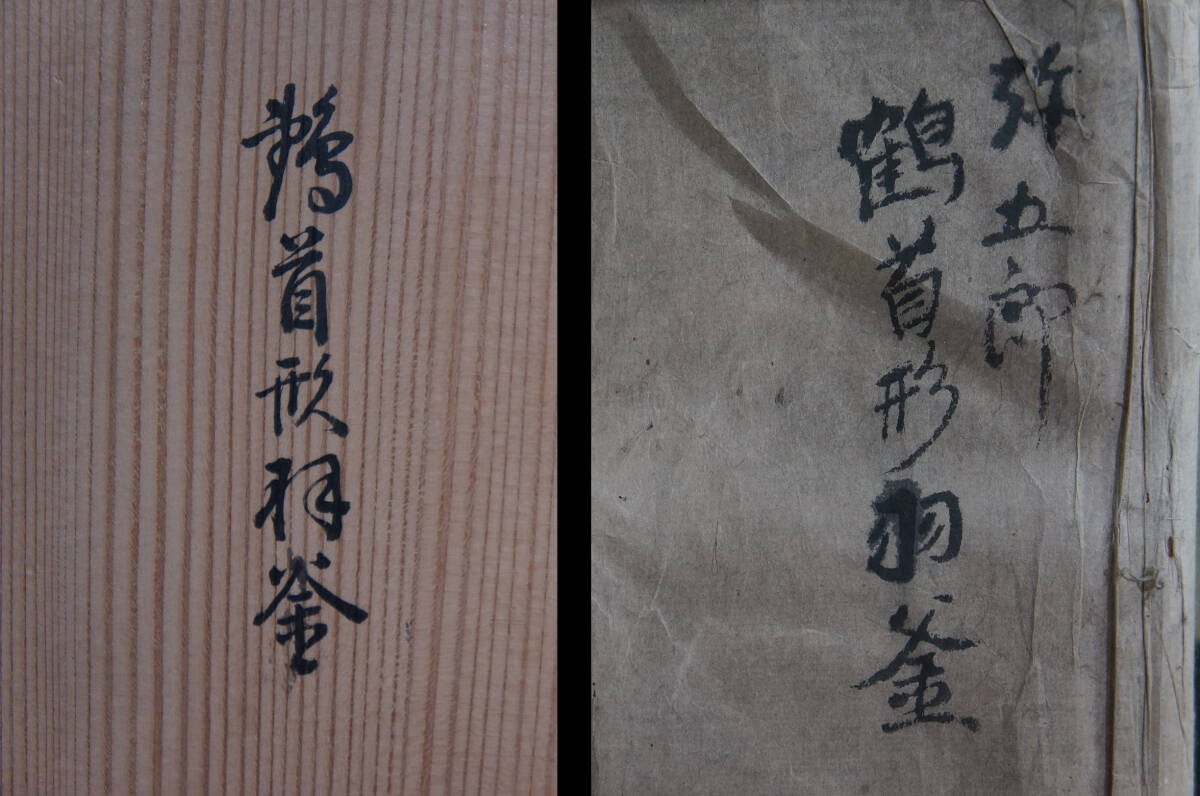 鶴首形羽釜
弥五郎
鶴首形羽釜